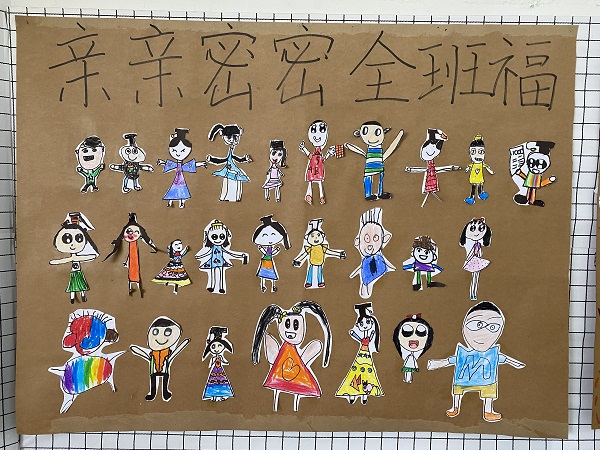 亲亲密密全班福